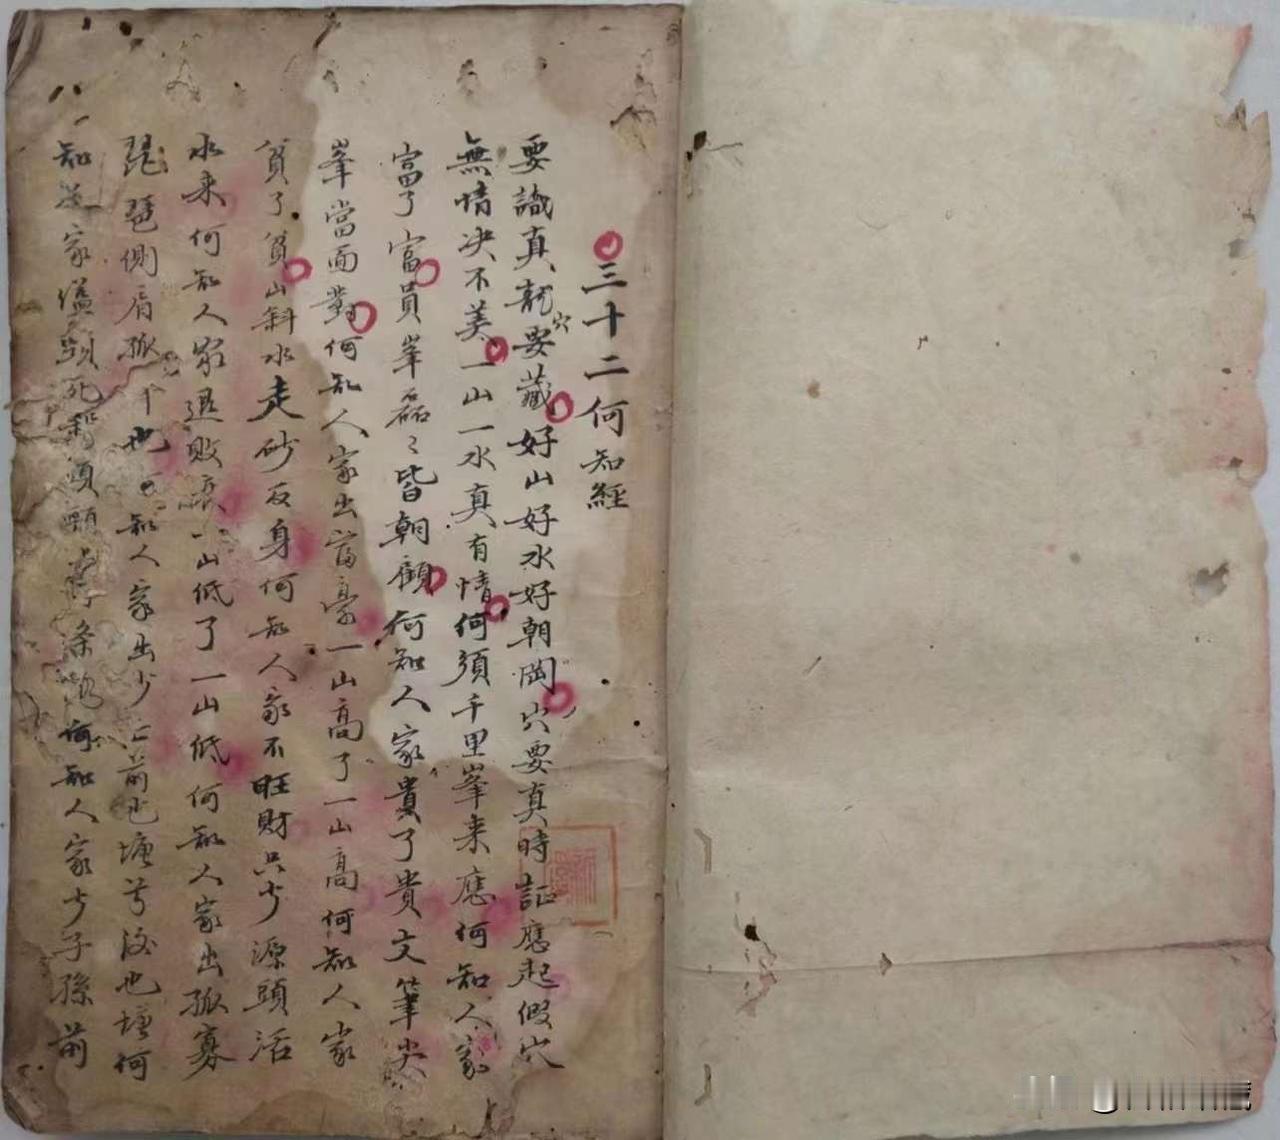 三十二何知經
要識真龍要藏穴好山好水好朝岡穴要真時証應起假穴
無情决不美一山一水真有情何須千里峯来應何知人家
富了富員峯磊々皆朝顧何知人家貴了貴文筆尖
峯當面對何知人家出富豪一山高了一山高何知人家
貧了貧山斜水走砂反身何知人家不旺財只少源頭活
水来何知人家退敗一山低了一山低何知人家出孤寡
琵琶側肩孤个也知人家出少亡前也塘兮後也塘何
知家死何知人家少子孫前